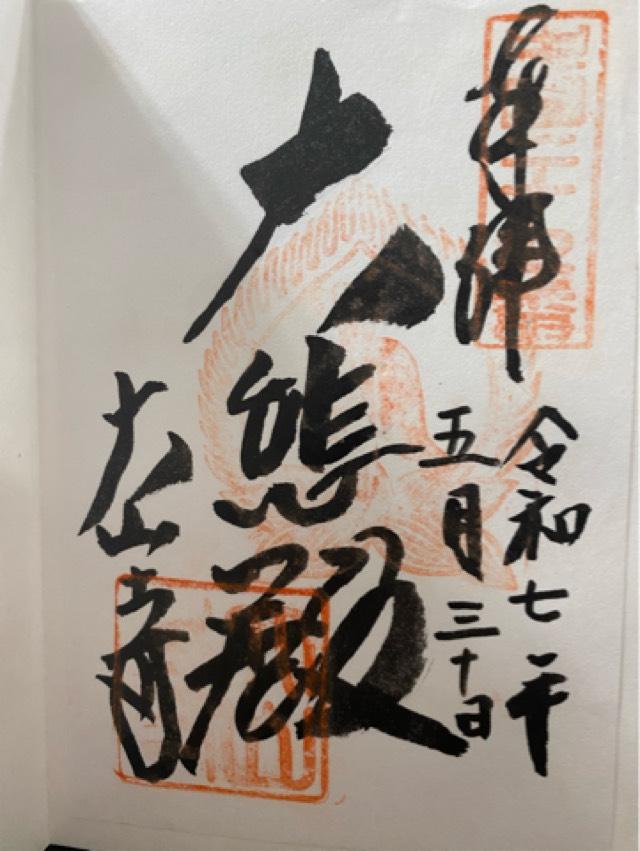 奉拝
令和七年
五月三十日
大悲殿
大山寺